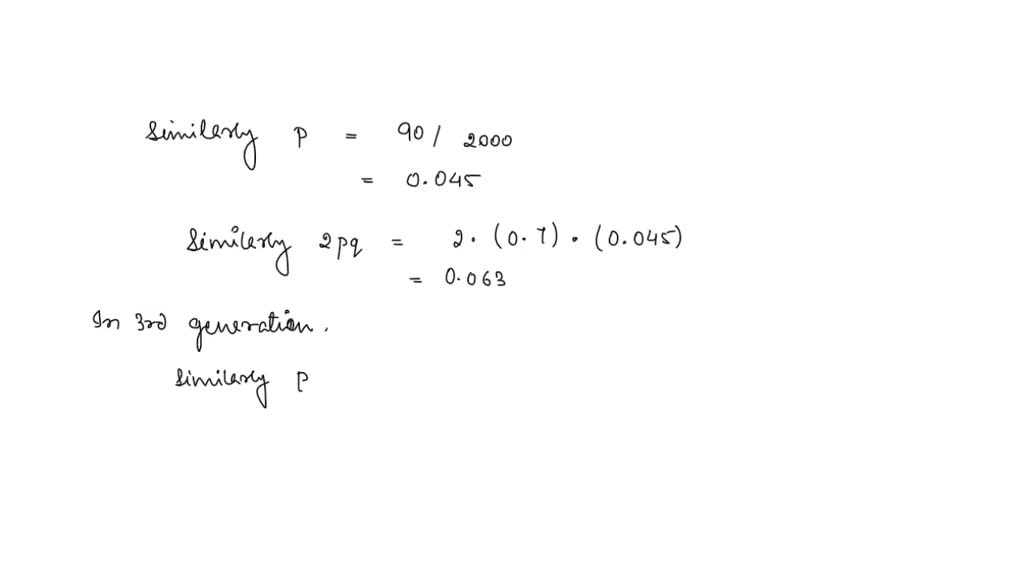 Similarly P = 90 / 2000
= 0.045
Similarly 2pq = 2 . (0.7) . (0.045)
= 0.063
In 3rd generation.
Similarly P